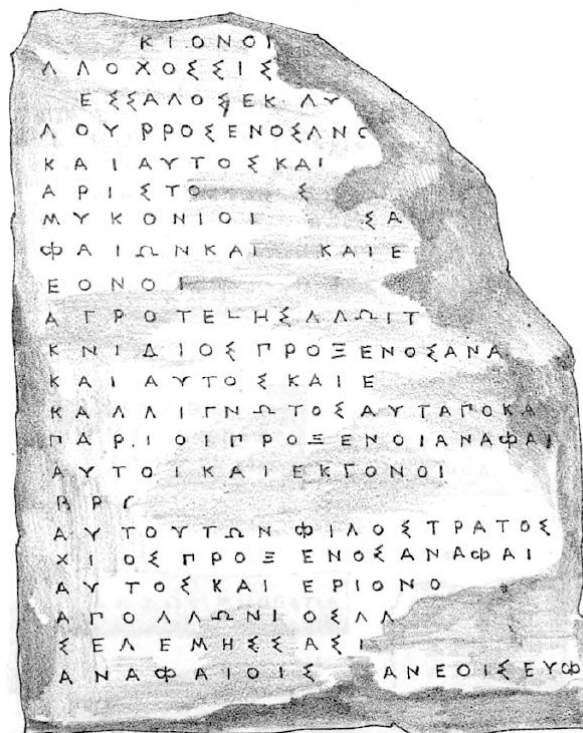 ΚΙΟΝΟΙ
ΛΛΟΧΟΣΣΙΣ
ΕΣΣΑΛΟΣΕΚ ΛΥ
ΛΟΥ ΡΡΟΣΕΝΟΣΛΝΟ
ΚΑΙΑΥΤΟΣΚΑΙ
ΑΡΙΣΤΟ Σ
ΜΥΚΟΝΙΟΙ ΣΑ
ΦΑΙΩΝΚΑΙ ΚΑΙΕ
ΕΟΝΟΙ
ΑΓΡΟΤΕLΗΣΛΛΩΙΤ
ΚΝΙΔΙΟΣΓΡΟΞΕΝΟΣΑΝΑ
ΚΑΙΑΥΤΟΣΚΑΙΕ
ΚΑΛΛΙΓΝΩΤΟΣΑΥΤΑΓΟΚΑ
ΠΑΡΙΟΙΓΡΟΞΕΝΟΙΑΝΑΦΑΙ
ΑΥΤΟΙΚΑΙΕΚΓΟΝΟΙ
ΑΥΤΟΥΤΩΝΦΙΛΟΣΤΡΑΤΟΣ
ΧΙΟΣΓΡΟΞΕΝΟΣΑΝΑΦΑΙ
ΑΥΤΟΣΚΑΙ ΕΡΙΟΝΟ
ΑΓΟΛΛΩΝΙΟΣΛΛ
ΣΕΛΕΜΗΣΣΑΣΙ
ΑΝΑΦΑΙΟΙΣ ΑΝΕΟΙΣΕΥΦ